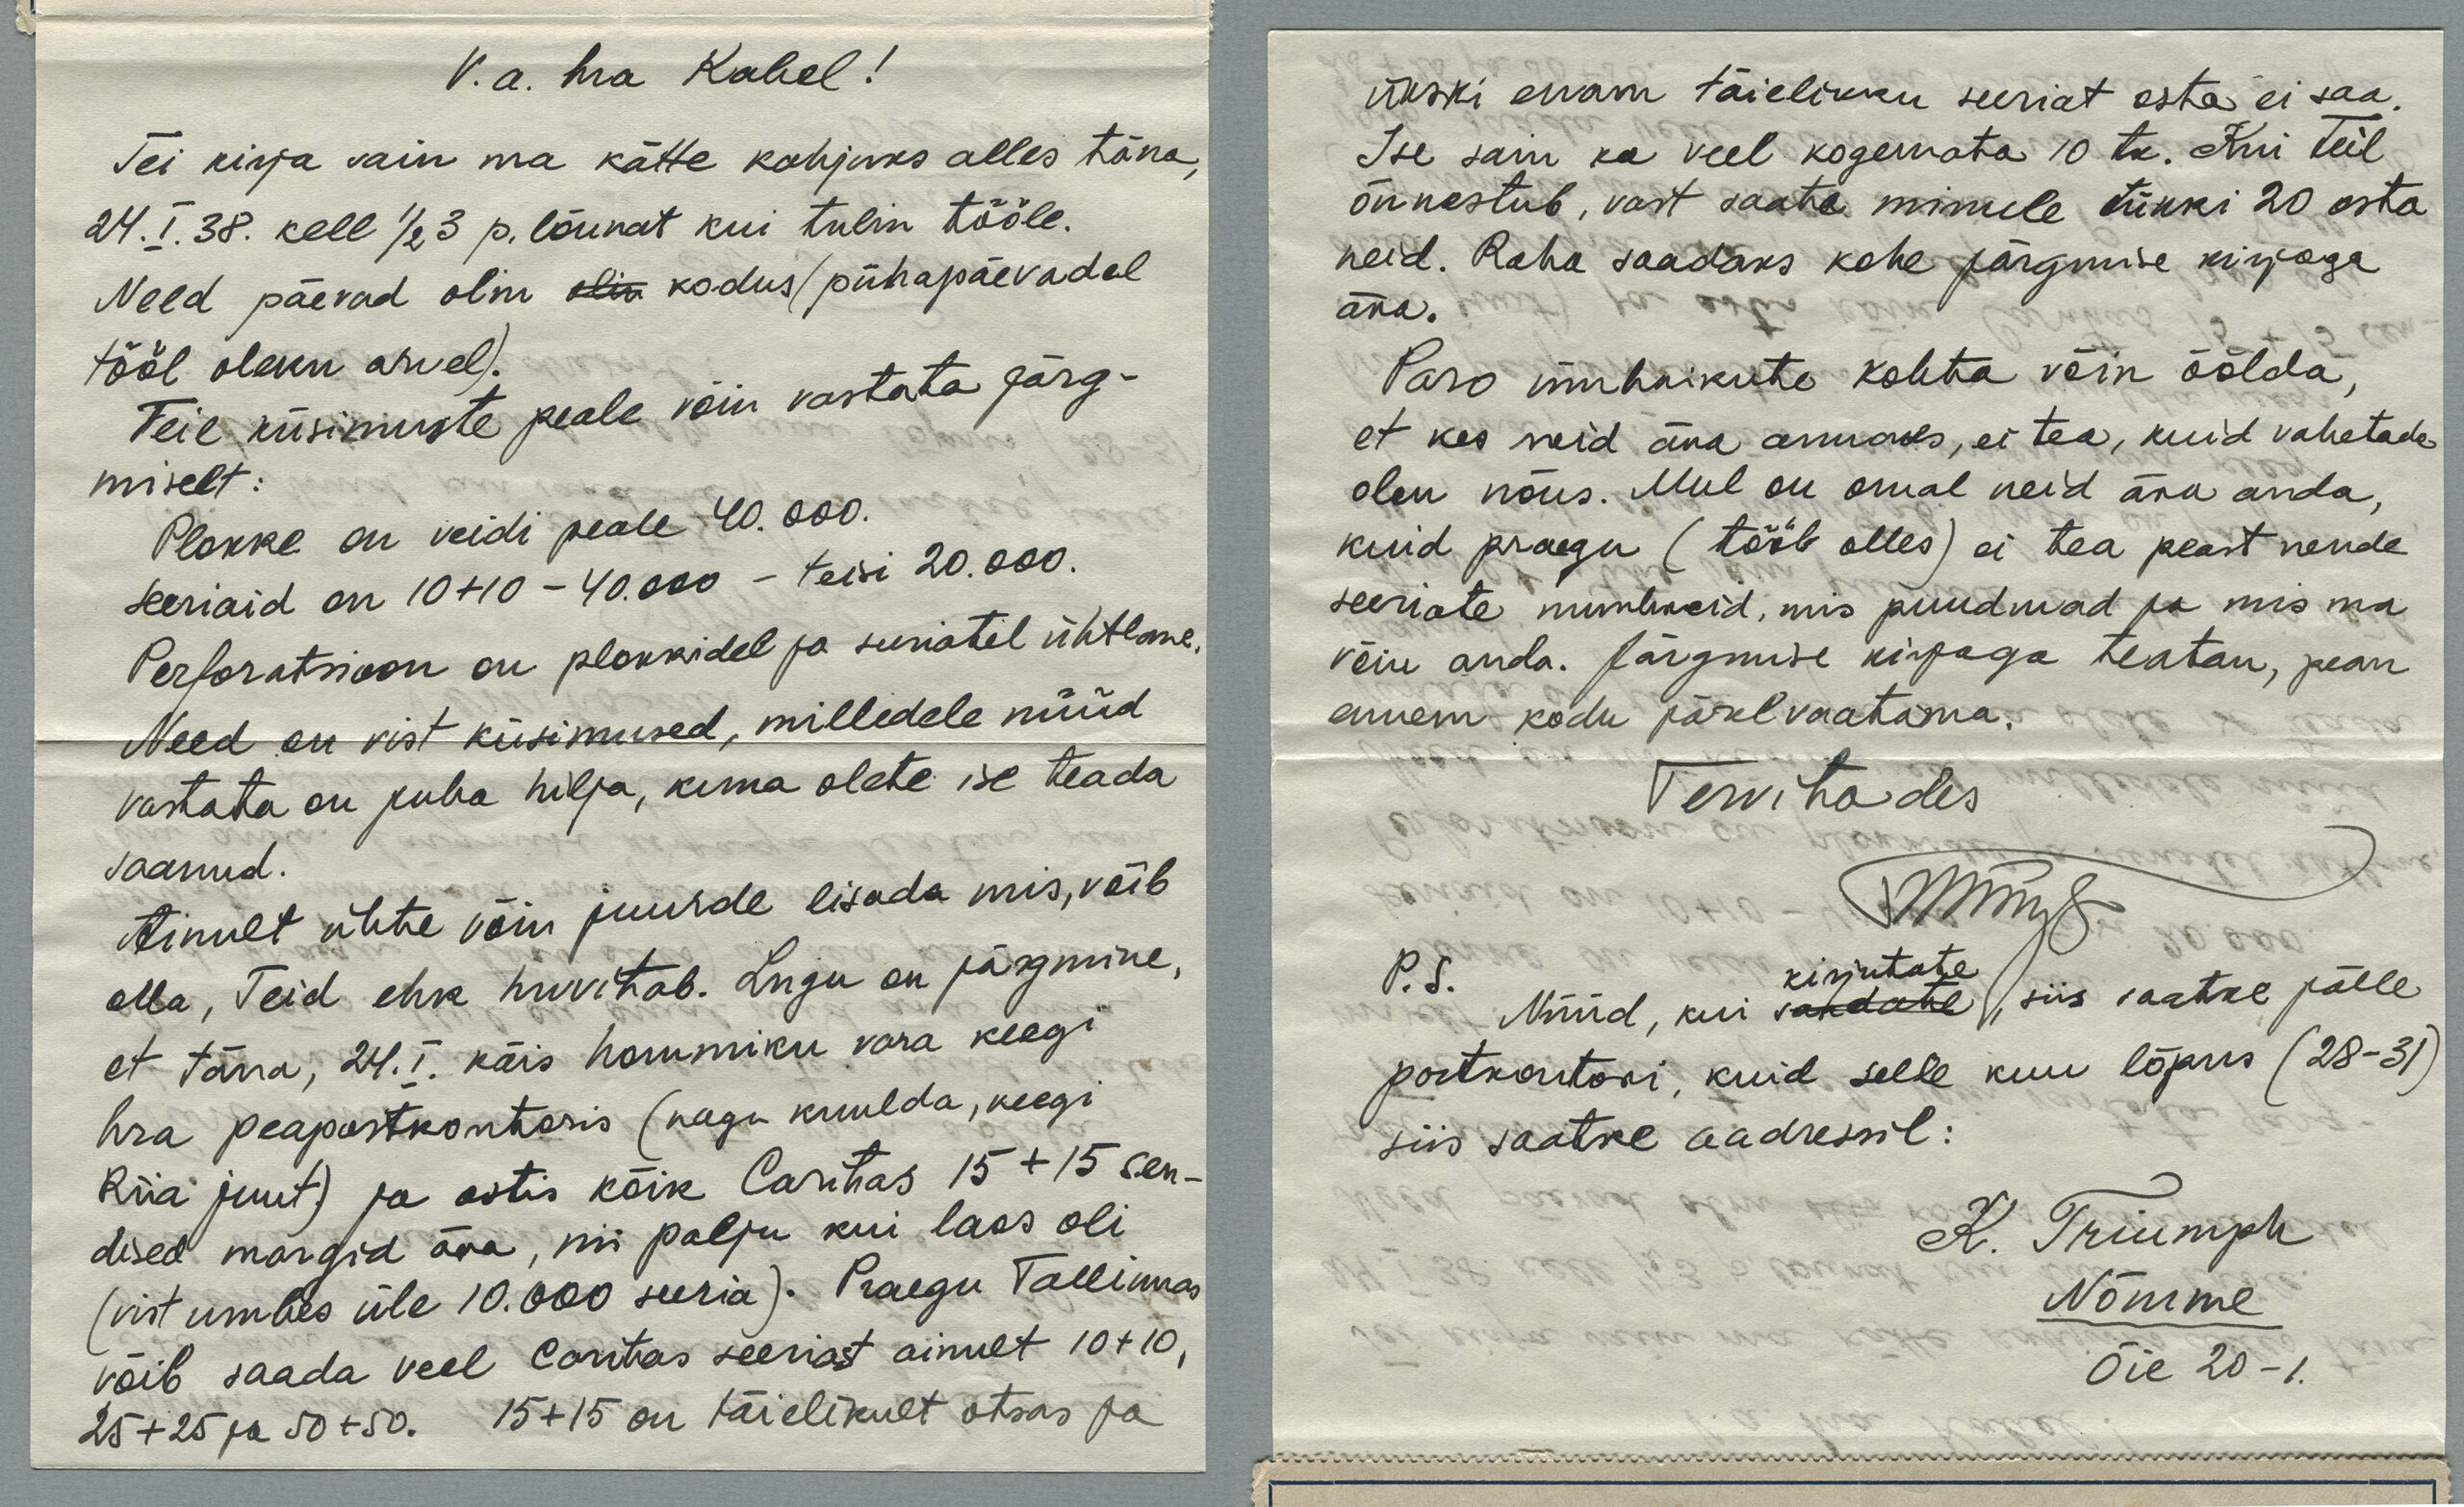 V. a. hra Kahel!
Tei kirja sain ma kätte kahjuks alles täna,
24. I. 38. kell ½3 p. lõunat kui tulin tööle.
Need päevad olin olin kodus (pühapäevadel
tööl oleku arvel).
Teie küsimuste peale võin vastata järg-
miselt:
Plokke on veidi peale 40.000.
Seeriaid on 10+10 – 40.000 – teisi 20.000.
Perforatsioon on plokkidel ja seeriatel ühtlane.
Need on vist küsimused, milledele nüüd
vastata on juba hilja, kuna olete ise teada
saanud.
Ainult ühte võin juurde lisada mis, võib
olla, Teid ehk huvitab. Lugu on järgmine,
et täna, 24. I. käis hommiku vara keegi
hra peapostkontoris (nagu kuulda, keegi
Riia juut) ja ostis kõik Caritas 15+15 sen-
dised margid ära, nii palju kui laos oli
(vist umbes üle 10.000 seeria). Praegu Tallinnas
võib saada veel Caritas seeriast ainult 10+10,
25+25 ja 50+50. 15+15 on täielikult otsas ja
ükski enam täielikku seeriat osta ei saa.
Ise sain ka veel kogemata 10 tk. Kui Teil
õnnestub, vast saate minule tükki 20 osta
neid. Raha saadaks kohe järgmise kirjaga
ära.
Paro ümbrikute kohta võin öölda,
et kes neid ära annaks, ei tea, kuid vahetada
olen nõus. Mul on omal neid ära anda,
kuid praegu (tööl olles) ei tea peast nende
seeriate numbreid, mis puuduvad ja mis ma
võin anda. Järgmise kirjaga teatan, pean
ennem kodu järelvaatama.
Tervitades
P.S.
kirjutate
Nüüd, kui saadate, siis saatke jälle
postkontori, kuid selle kuu lõpus (28-31)
siis saatke aadressil:
K. Triumph
Nõmme
Õie 20-1.